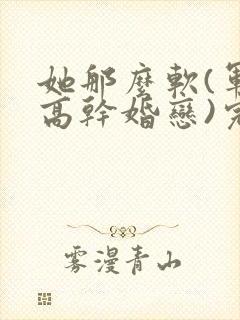 她那麼軟(軍
高幹婚戀)完
雾漫青山